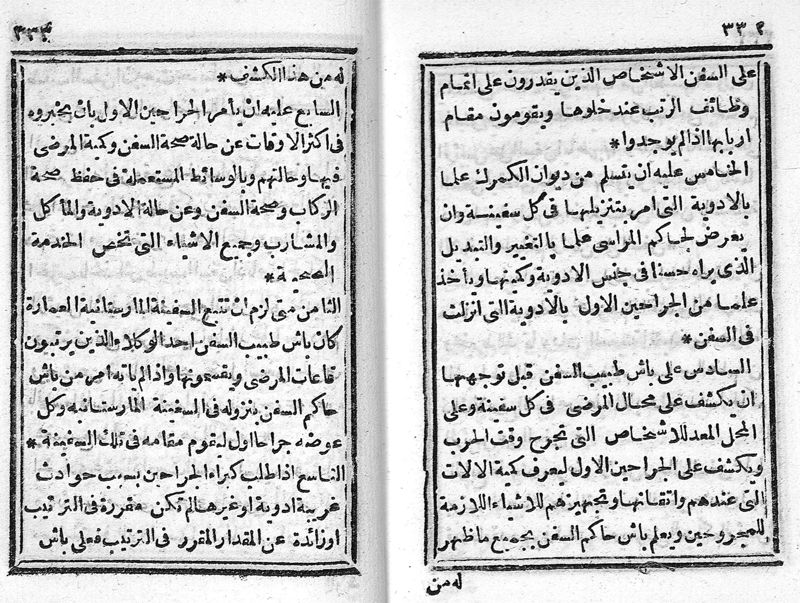 ٣٣٢
على السفن الاشخاص الذين يقدرون على اتمام
وظائف الرتب عند خلوها ويقومون مقام
اربابها اذا لم يوجدوا *
الخامس عليه ان يتسلم من ديوان الكمرك علما
بالادوية التى امر بتنزيلها فى كل سفينة وان
يعرض لحاكم المراسى علما بالتغيير والتبديل
الذى يراه حسنا فى جنس الادوية وكميتها ويأخذ
علما من الجراحين الاول بالادوية التى انزلت
فى السفن *
السادس على باش طبيب السفن قبل توجهها
ان يكشف على محال المرضى فى كل سفينة وعلى
المحل المعد للاشخاص التى تجرح وقت الحرب
ويكشف على الجراحين الاول ليعرف كمية الالات
التى عندهم واتقانها وتجهيزهم للاشياء اللازمة
للمجروحين ويعلم باش حاكم السفن بجميع ما ظهر
له من
٣٣٣
له من هذا الكشف *
السابع عليه ان يأمر الجراحين الاول بان يخبروه
فى اكثر الاوقات عن حالة صحة السفن وكمية المرضى
فيها وحالتهم وبالوسائط المستعملة فى حفظ صحة
الركاب وصحة السفن وعن حالة الادوية والمأكل
والمشارب وجميع الاشياء التى تخص الخدمة
الصحية *
الثامن متى لزم ان تتبع السفينة المارستانية العمارة
كان باش طبيب السفن احد الوكلاء الذين يرتبون
قاعات المرضى ويقسمونها واذا لم يأته امر من باش
حاكم السفن بنزوله فى السفينة المارستانيه وكل
عوضه جراحا اول ليقوم مقامه فى تلك السفينة *
التاسع اذا طلب كبراء الجراحين بسبب حوادث
غريبة ادوية او غيرها لم تكن مقررة فى الترتيب
او زائدة عن المقدار المقرر فى الترتيب فعلى باش